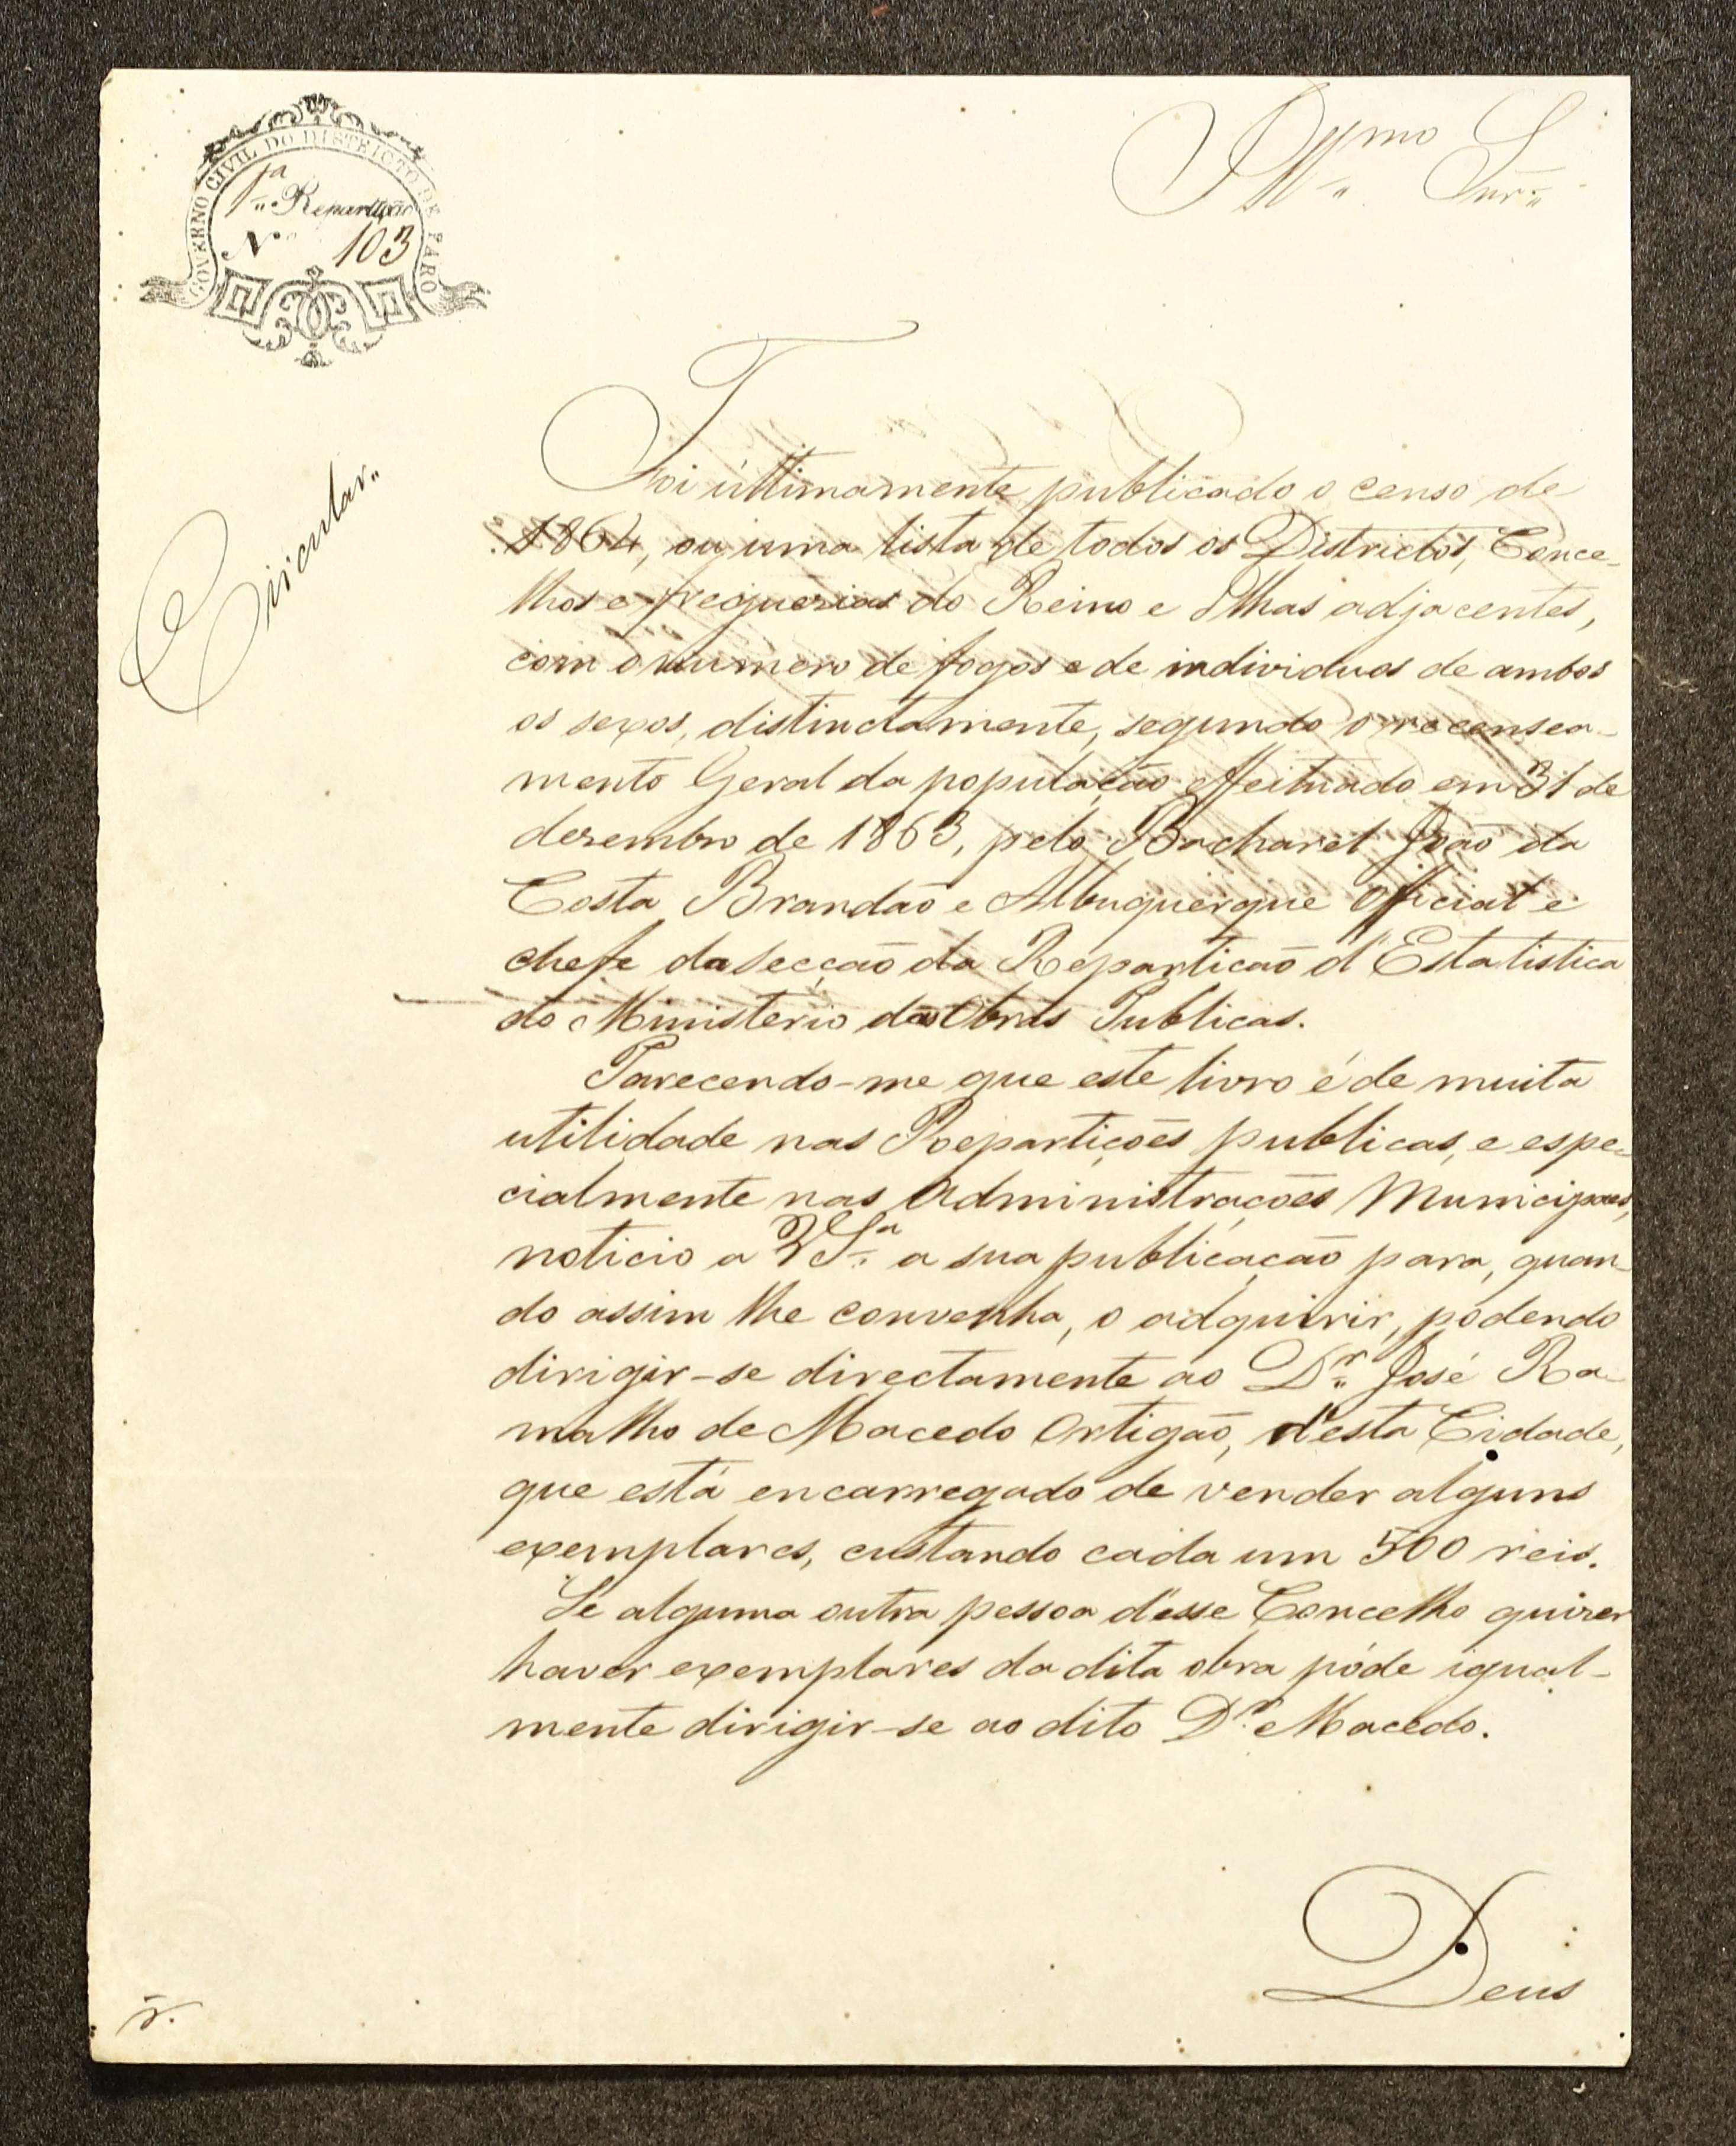 GOVERNO CIVIL DO DISTRICTO DE FARO
1.ª Repartição
N.º 103
Illmo Snr.
Circular.
Foi últtimamente publicado o censo de
1864, ou uma lista de todos os Districtos, Conce-
lhos e freguezias do Reino e Ilhas adjacentes,
com o numero de fogos e de individuos de ambos
os sexos, distinctamente, segundo o recensea-
mento Geral da população effeituado em 31 de
dezembro de 1863, pelo Bacharel João da
Costa Brandão e Albuquerque Official e
chefe da secção da Repartição d'Estatistica
do Ministerio das Obras Publicas.
Parecendo-me que este livro é de muita
utilidade nas Repartições publicas, e espe-
cialmente nas Administrações Municipaes,
noticio a V Sª a sua publicação para, quan-
do assim lhe convenha, o adquirir, podendo
dirigir-se directamente ao Dr. José Ra-
malho de Macedo Ortigão, d'esta Cidade,
que está encarregado de vender alguns
exemplares, custando cada um 500 reis.
Se alguma outra pessoa d'esse Concelho quizer
haver exemplares da dita obra póde igual-
mente dirigir-se ao dito Dr. Macedo.
Deus